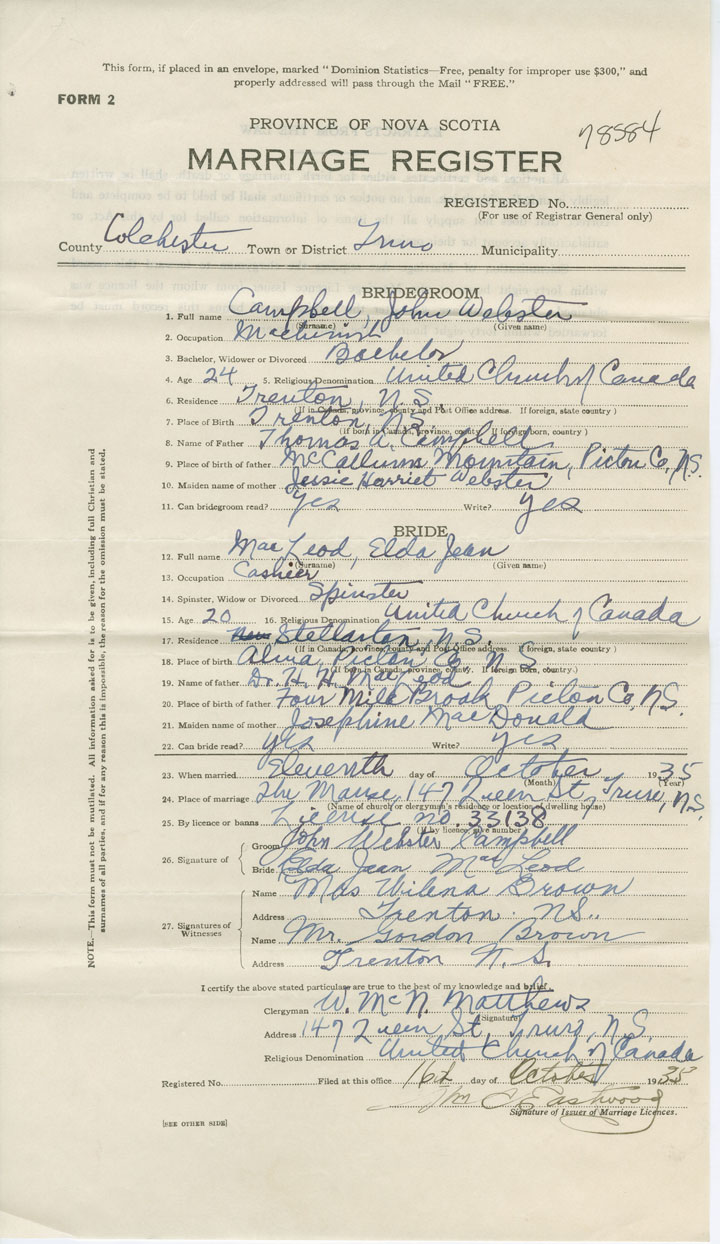 This form, if placed in an envelope, marked "Dominion Statistics—Free, penalty for improper use $300," and
properly addressed will pass through the Mail "FREE."
FORM 2
PROVINCE OF NOVA SCOTIA
78584
MARRIAGE REGISTER
REGISTERED No.
(For use of Registrar General only)
County Colchester Town or District Truro Municipality
BRIDEGROOM
1. Full name Campbell, John Webster
(Surname) (Given name)
2. Occupation Machinist
3. Bachelor, Widower or Divorced Bachelor
4. Age 24 5. Religious Denomination United Church of Canada
6. Residence Trenton, N.S.
(If in Canada, province, county and Post Office address. If foreign, state country)
7. Place of Birth Trenton, N.S.
(If born in Canada, province, county. If foreign born, country.)
8. Name of Father Thomas A. Campbell
9. Place of birth of father McCallums Mountain, Pictou Co, N.S.
10. Maiden name of mother Jessie Harriet Webster
11. Can bridegroom read? yes Write? yes
BRIDE
12. Full name MacLeod, Elda Jean
(Surname) (Given name)
13. Occupation Cashier
14. Spinster, Widow or Divorced Spinster
15. Age 20 16. Religious Denomination United Church of Canada
17. Residence Stellarton, N.S.
(If in Canada, province, county and Post Office address. If foreign, state country)
18. Place of birth Alma, Pictou Co. N.S.
(If born in Canada, province, county. If foreign born, country.)
19. Name of father Dr. H. H. MacLeod
20. Place of birth of father Four Mile Brook Pictou Co, N.S.
21. Maiden name of mother Josephine MacDonald
22. Can bride read? yes Write? yes
23. When married Eleventh day of October 1935
(Month) (Year)
24. Place of marriage The Manse, 147 Queen St, Truro, N.S.
(Name of church or clergyman's residence or location of dwelling house)
25. By licence or banns License no. 33138
(If by licence, give number)
26. Signature of
Groom John Webster Campbell
Bride Elda Jean MacLeod
27. Signatures of Witnesses
Name Mrs Wilena Brown
Address Trenton. N.S..
Name Mr. Gordon Brown
Address Trenton N.S.
I certify the above stated particulars are true to the best of my knowledge and belief.
Clergyman W. McN. Matthews
(Signature)
Address 147 Queen St, Truro, N.S.
Religious Denomination United Church of Canada
Registered No. Filed at this office 16th day of October 1935
Eastwood
Signature of Issuer of Marriage Licences.
[SEE OTHER SIDE]
NOTE.—This form must not be mutilated. All information asked for is to be given, including full Christian and
surnames of all parties, and if for any reason this is impossible, the reason for the omission must be stated.